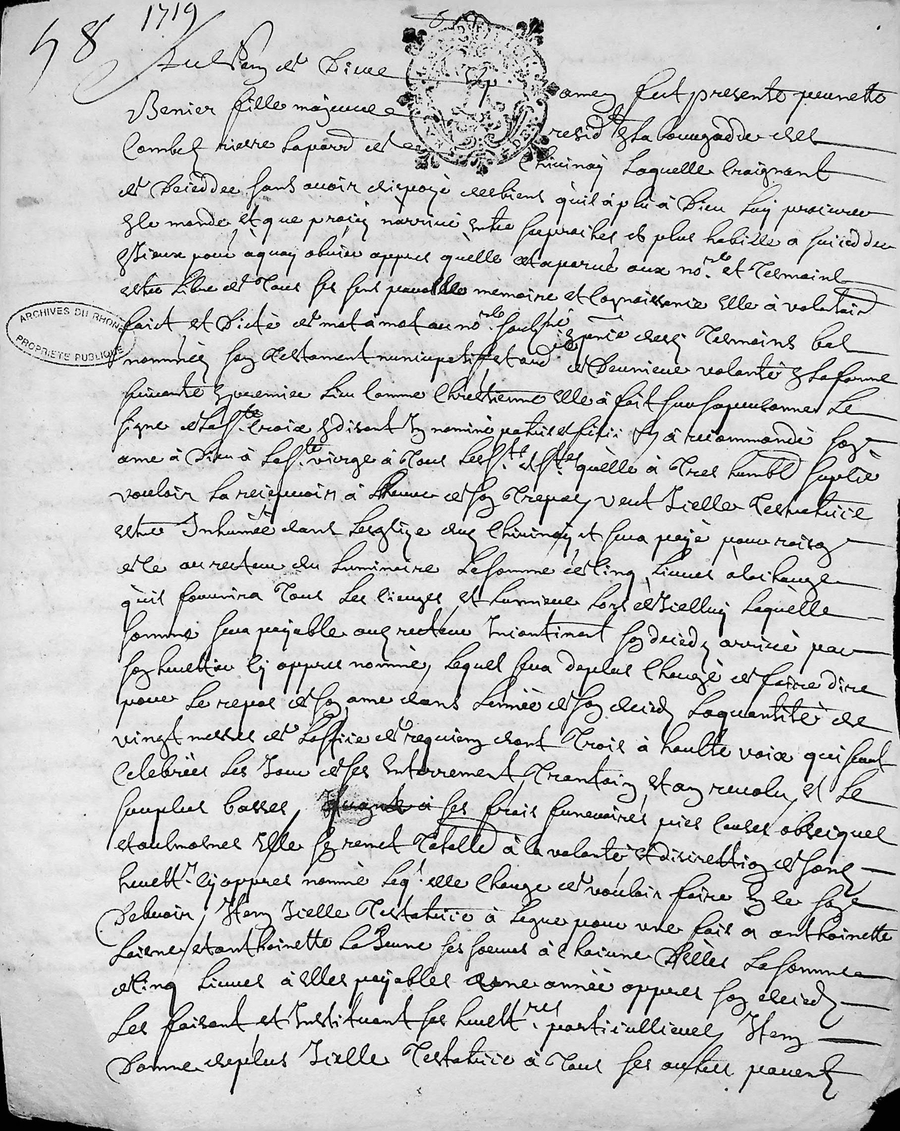 58 1719
Au Nom de Dieu amen fut presente pernette
Benier fille majeure resid^te En la bourgade des
Combes rierre la parr^e de Chivinay Laquelle Craignant
de deceddee sans avoir disposé des biens quil à plû à Dieu Luy procurer
En ce monde, Et que procez n'arrive entre ses proches et plus habille a succedder
Iceux pour a quoy obvier appres quelle aux no^re et Tesmoins
estre Libre de Tous ses sens memoire et Cognoissance Elle à volontair
faict et Dicté de mot à mot au no^re soubsigné En pnce des Tesmoins bas
nommés son Testament nuncupatif et ord de Derniere volonté En la forme
suivante En premier Lieu Comme Chrestienne Elle à fait sur sa personne Le
signe de La S^te Croix En disant In nomine patris et filii Et à recommandé son
ame à Dieu à La S^te vierge à Tous Les S^ts et S^tes quèlle à Tres humbl^t suplié
vouloir La recepvoir à Lheure de son Trepas, veut Icelle Testatrice
estre Inhumée dans Lesglize dud Chivinay, et sera payé pour raison
de ce au recteur du Luminaire La somme de Cinq Livres à la charge
qu'il fournira Tous Les Cierges et Lumiere Lors d'Icelluy Laquelle
somme sera payable aud recteur Incontinent son decedz arrivé par
son heritier Cy appres nommé, Lequel sera de plus Chargé de faire dire
pour Le repos de son ame dans L'année de son decedz La quantité de
vingt messes de Loffice de requiem dont Trois à haulte voix qui seront
Celebrées Les Jour de ses Enterrement Trantain, et an revolu, et Le
surplus basses, quant à ses frais funeraires, pies Causes obseques
et aulmosnes Elle sen remet Totalle^t à la volonté Et discrettion de sond
herit^r Cy appres nommé Leq^l elle Charge de vouloir faire En ce son
Debvoir, Item Icelle Testatrice à Legué pour une fois a anthoinette
Laisne, et anthoinette La Jeune ses soeurs à chacune D'elles La somme
de Cinq Livres à Elles payables dans une année appres son decedz
Les faisant et Instituant ses herit^res particullieres, Item
Donne de plus Icelle Testatrice à Tous ses autres parents
ARCHIVES DU RHONE
PROPRIETE PUBLIQUE